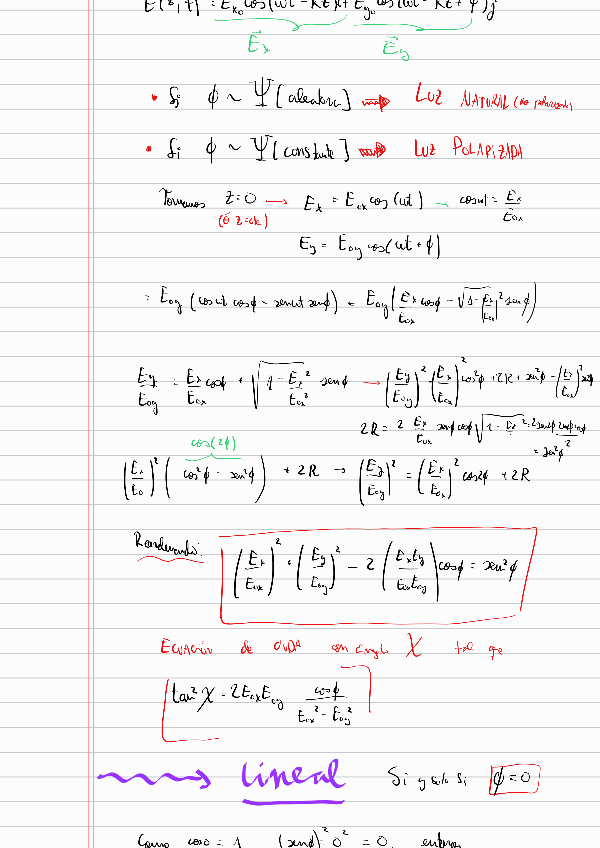 E(z,t) = Ex₀ cos(ωt - kz)i + Ey₀ cos(ωt - kz + ϕ)j
E⃗x E⃗y
• Si ϕ ~ Ψ [aleatoria] ⟹ LUZ NATURAL (no polarizada)
• Si ϕ ~ Ψ [constante] ⟹ LUZ POLARIZADA
Tomamos z=0 → Ex = E₀x cos(ωt) → cosωt = Ex/E₀x
(ó z=cte)
Ey = E₀y cos(ωt + ϕ)
= E₀y (cosωt cosϕ - senωt senϕ) = E₀y (Ex/E₀x cosϕ - √(1-(Ex/E₀x)²) senϕ)
Ey/E₀y = Ex/E₀x cosϕ + √(1 - Ex²/E₀x²) senϕ → (Ey/E₀y)² (Ex/E₀x)² cos²ϕ + 2R + sen²ϕ - (Ex/E₀x)² sen²ϕ
2R = 2 Ex/E₀x senϕ cosϕ √(1 - Ex²
cos(2ϕ)
(Ex/E₀)² (cos²ϕ - sen²ϕ) + 2R → (Ey/E₀y)² = (Ex/E₀x)² cos2ϕ + 2R
(Ex/E₀x)² + (Ey/E₀y)² - 2 (ExEy/E₀xE₀y) cosϕ = sen²ϕ
ECUACIÓN DE ONDA con ángulo χ tal que
tan²χ = 2E₀xE₀y cosϕ/(E₀x² - E₀y²)
Lineal Si y solo si ϕ = 0
Como cos0 = 1 (sen0)² 0² = 0, entonces